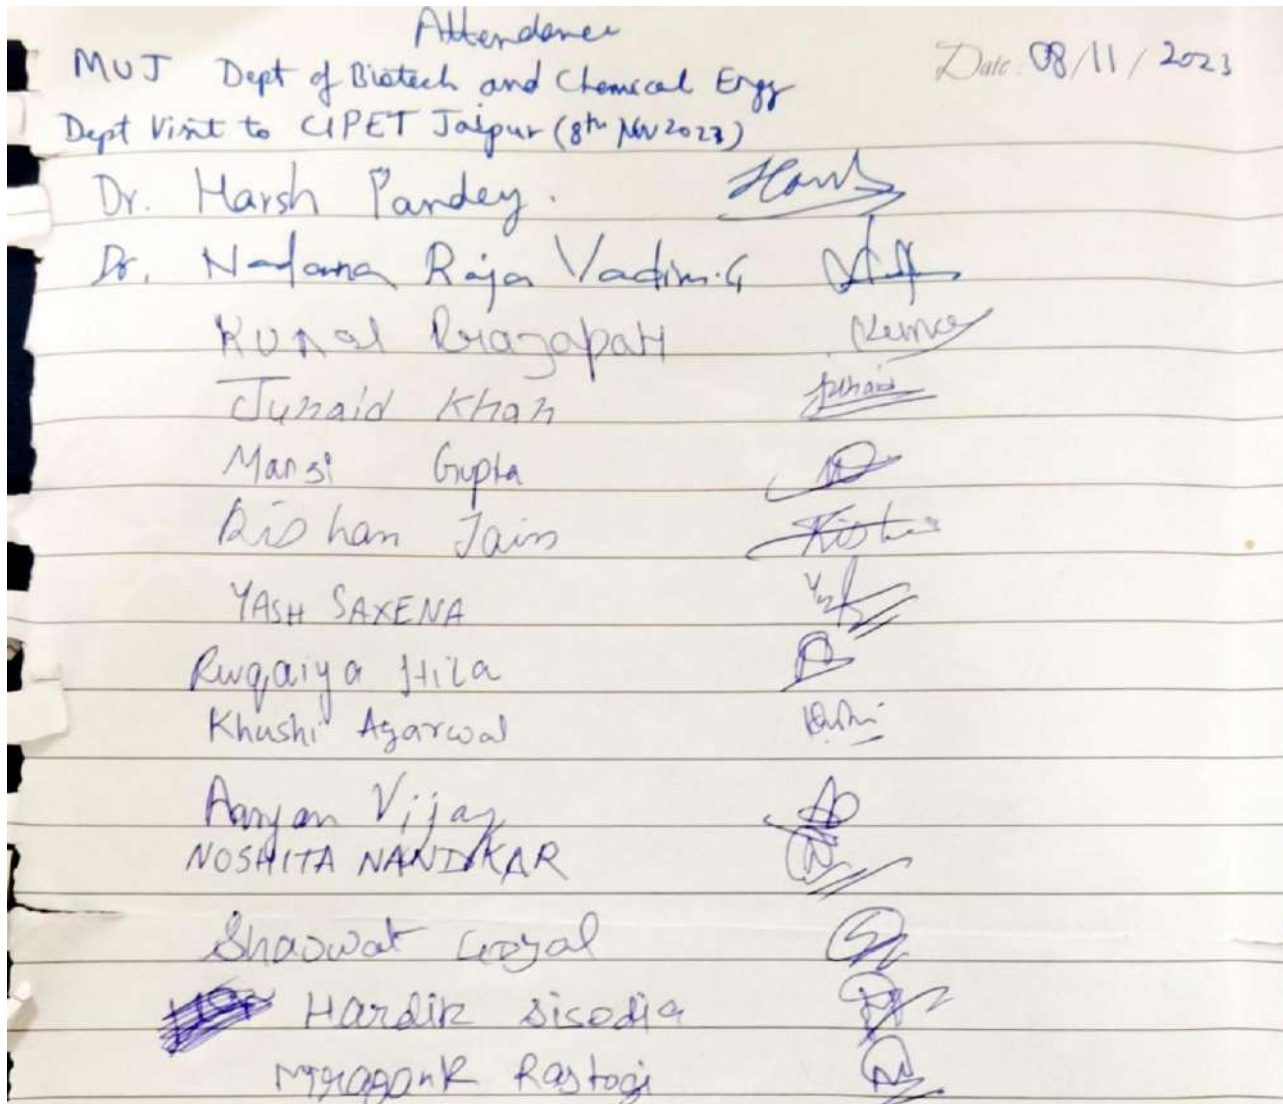 Attendance
Date: 08/11/2023
MUJ Dept of Biotech and Chemical Engg
Dept Visit to CIPET Jaipur (8th Nov 2023)
Dr. Harsh Pandey. Harsh
Dr. Nadana Raja Vadivu. G
Kunal Prajapati Kumar
Junaid Khan Junaid
Mansi Gupta
Rishan Jain
YASH SAXENA Yash
Ruqaiya Hila
Khushi Agarwal Khushi
Aaryan Vijay
NOSHITA NANDKAR
Shaswat Goyal
Hardik Sisodia
Mragank Rastogi